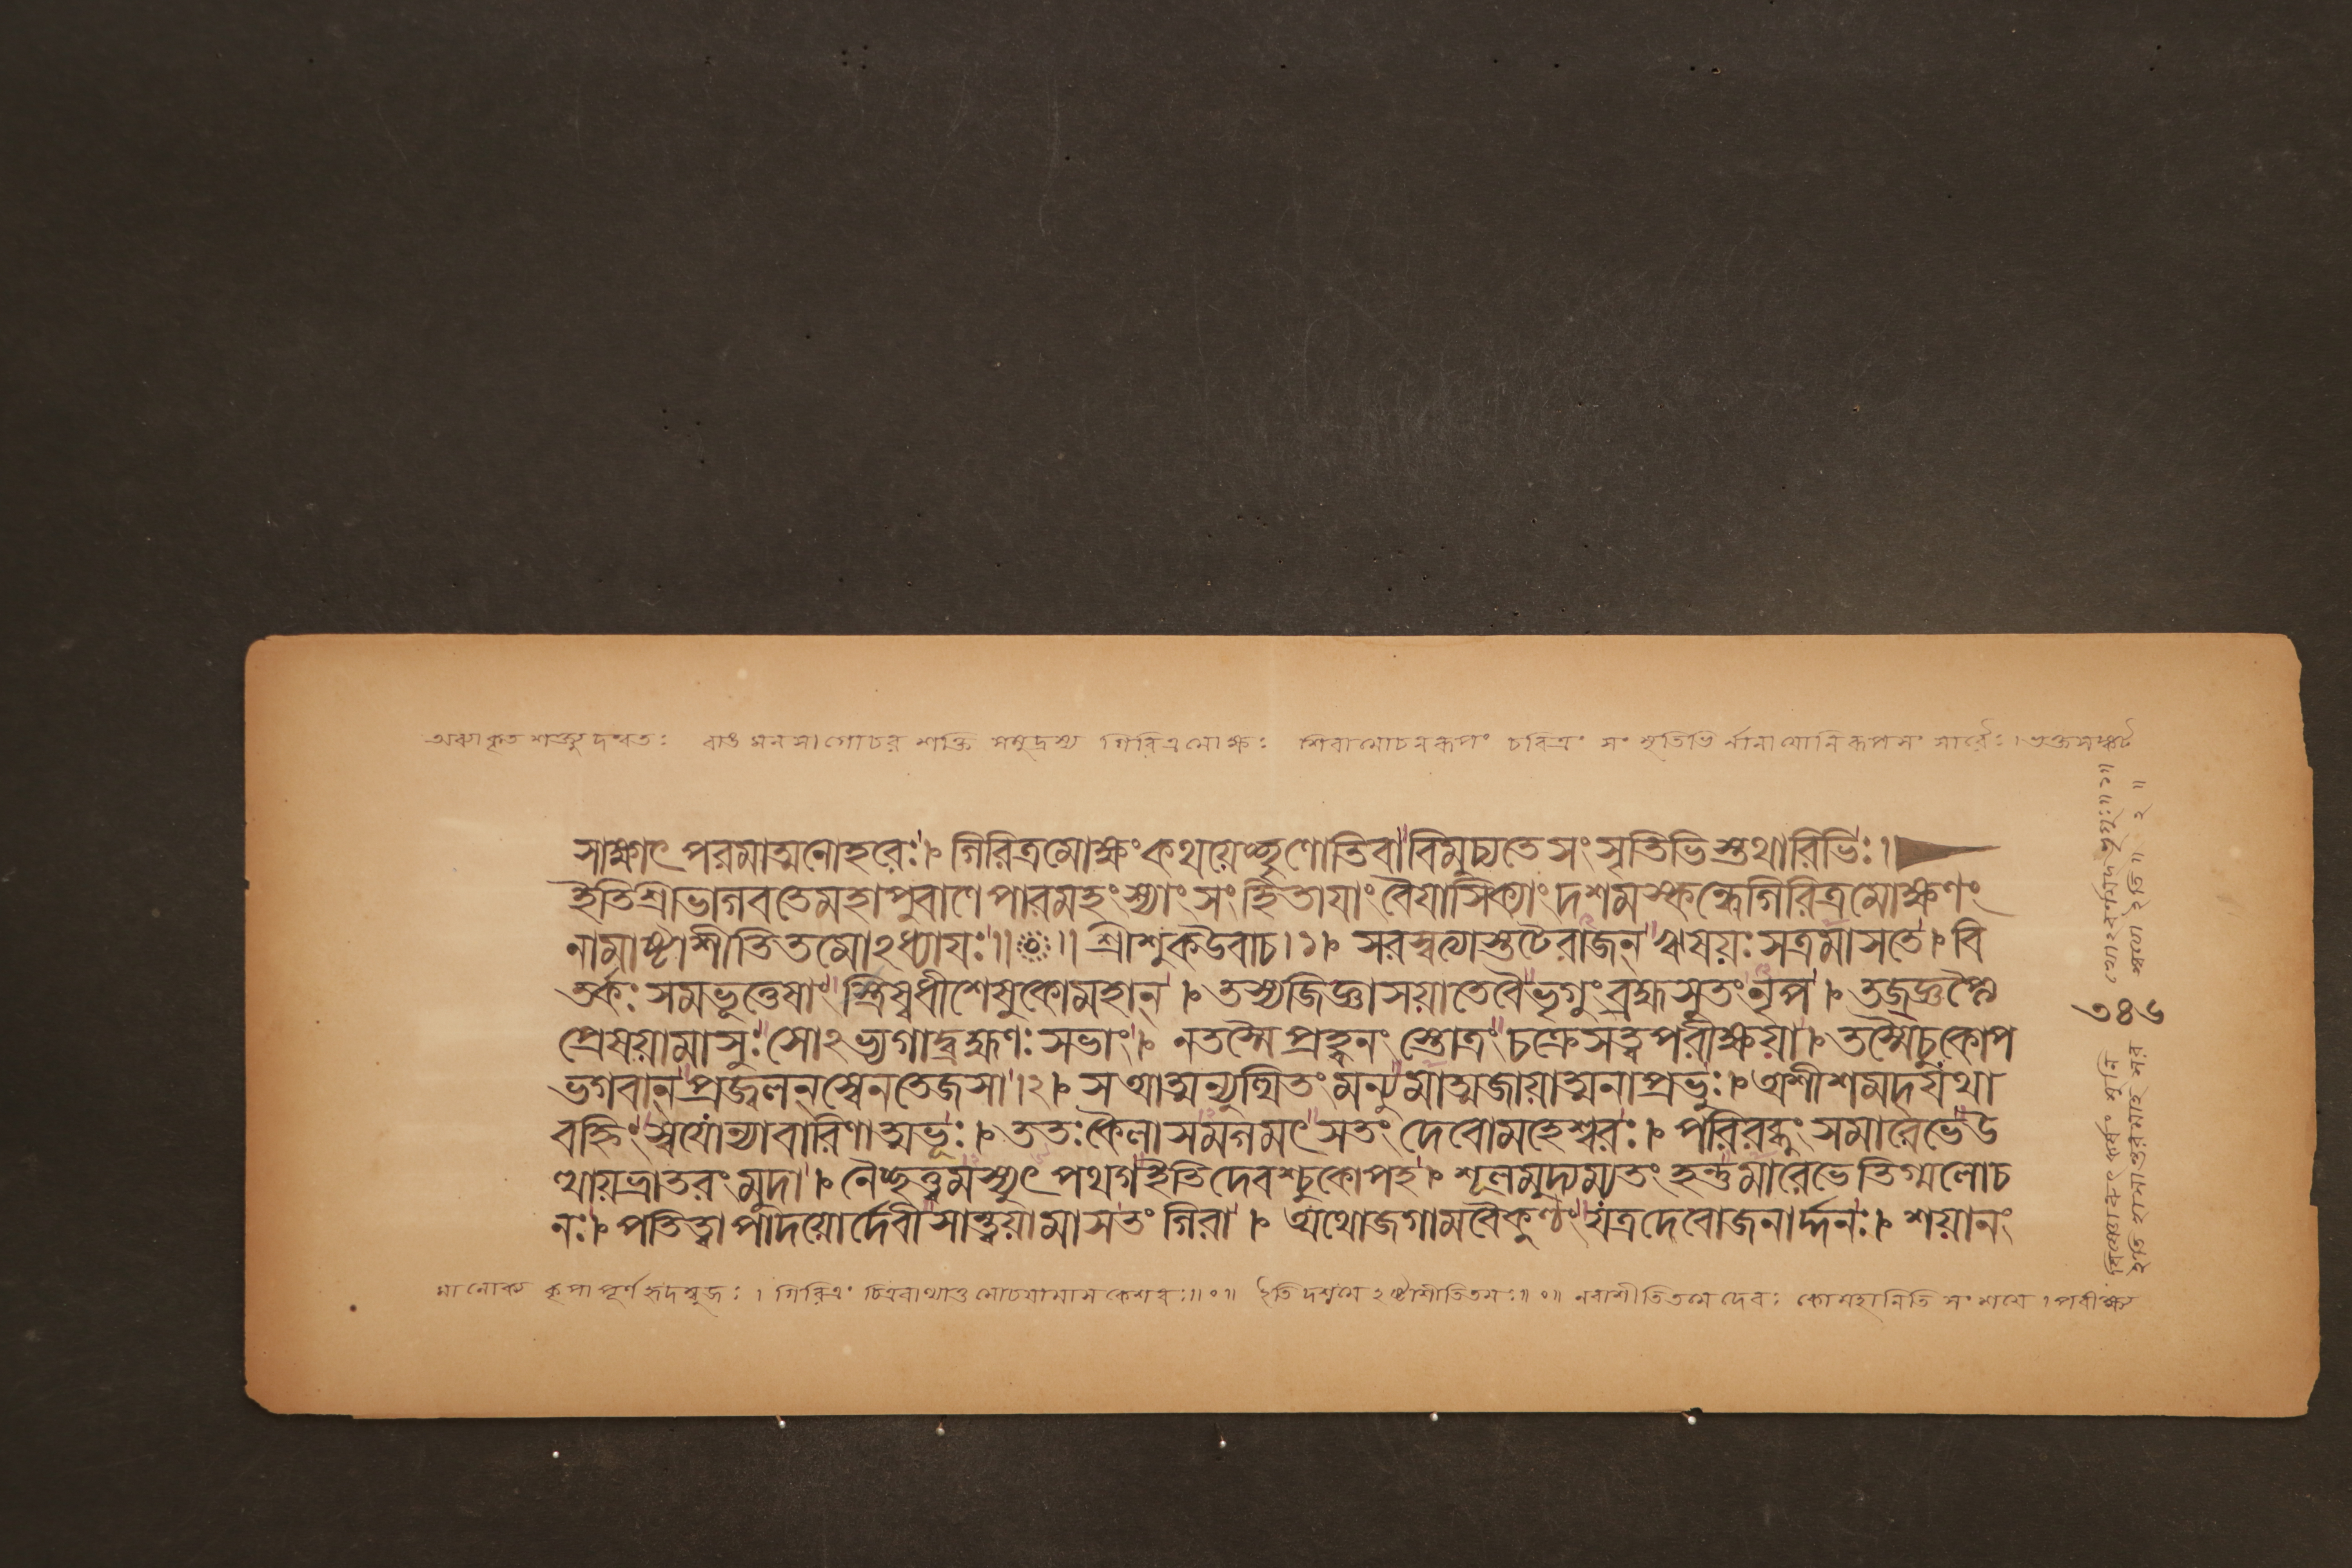 অব্যাকৃত শক্ত্যুদন্বতঃ বাঙমনসাগোচর শক্তি সমুদ্রস্য গিরিত্রমোক্ষঃ শিবামোচনরূপং চরিত্রং সংসৃতিভি র্নানাযোনি
সাক্ষাৎ পরমাত্মনোহরেঃ। গিরিত্রমোক্ষংকথয়েচ্ছৃণোতিবাবিমুচ্যতেসংসৃতিভিস্তথারিভিঃ।
ইতিশ্রীভাগবতেমহাপুরাণেপারমহংস্যাংসংহিতায়াংবৈয়াসিক্যাংদশমস্কন্ধেগিরিত্রমোক্ষণং
নামাষ্টাশীতিতমোঽধ্যায়ঃ॥ ॥ শ্রীশুকউবাচ।১। সরস্বত্যাস্তটেরাজন্ ঋষয়ঃসত্রমাসতে। বি
তর্কঃ সমভূত্তেষাং ত্রিষ্বধীশেষুকোমহান্। তস্যজিজ্ঞাসয়াতেবৈভৃগুংব্রহ্মসুতংনৃপ। তজ্জ্ঞপ্ত্যৈ
প্রেষয়ামাসুঃসোঽভ্যগাদ্ব্রহ্মণঃসভাং। নতস্মৈপ্রহ্বনং স্তোত্রংচক্রেসত্ত্বপরীক্ষয়া। তস্মৈচুকোপ
ভগবান্প্রজ্বলন্স্বেনতেজসা।২। সআত্মন্যুত্থিতংমন্যুমাত্মজায়াত্মনাপ্রভুঃ। অশীশমদ্যথা
বহ্নিং স্বযোন্যাবারিণাত্মভূঃ। ততঃকৈলাসমগমৎ সতং দেবোমহেশ্বরঃ। পরিরব্ধুং সমারেভেউ
ত্থায়ভ্রাতরংমুদা। নৈচ্ছত্ত্বমস্যুৎপথগইতিদেবশ্চুকোপহ। শূলমুদ্যম্যতংহন্তুমারেভেতিগ্মলোচ
নঃ। পতিত্বাপাদয়োর্দেবীসান্ত্বয়ামাসতংগিরা। অথোজগামবৈকুণ্ঠং যত্রদেবোজনার্দ্দনঃ। শয়ানং
কৃপাপূর্ণহৃদম্বুজঃ। গিরিত্রং মোচয়ামাসকেশবঃ॥০॥ ইতিদশমেঽষ্টাশীতিতমঃ॥০॥ নবাশীতিতমেদেবঃ কোমহানিতি সংশয়ে। পরীক্ষ্য
৩৪৬